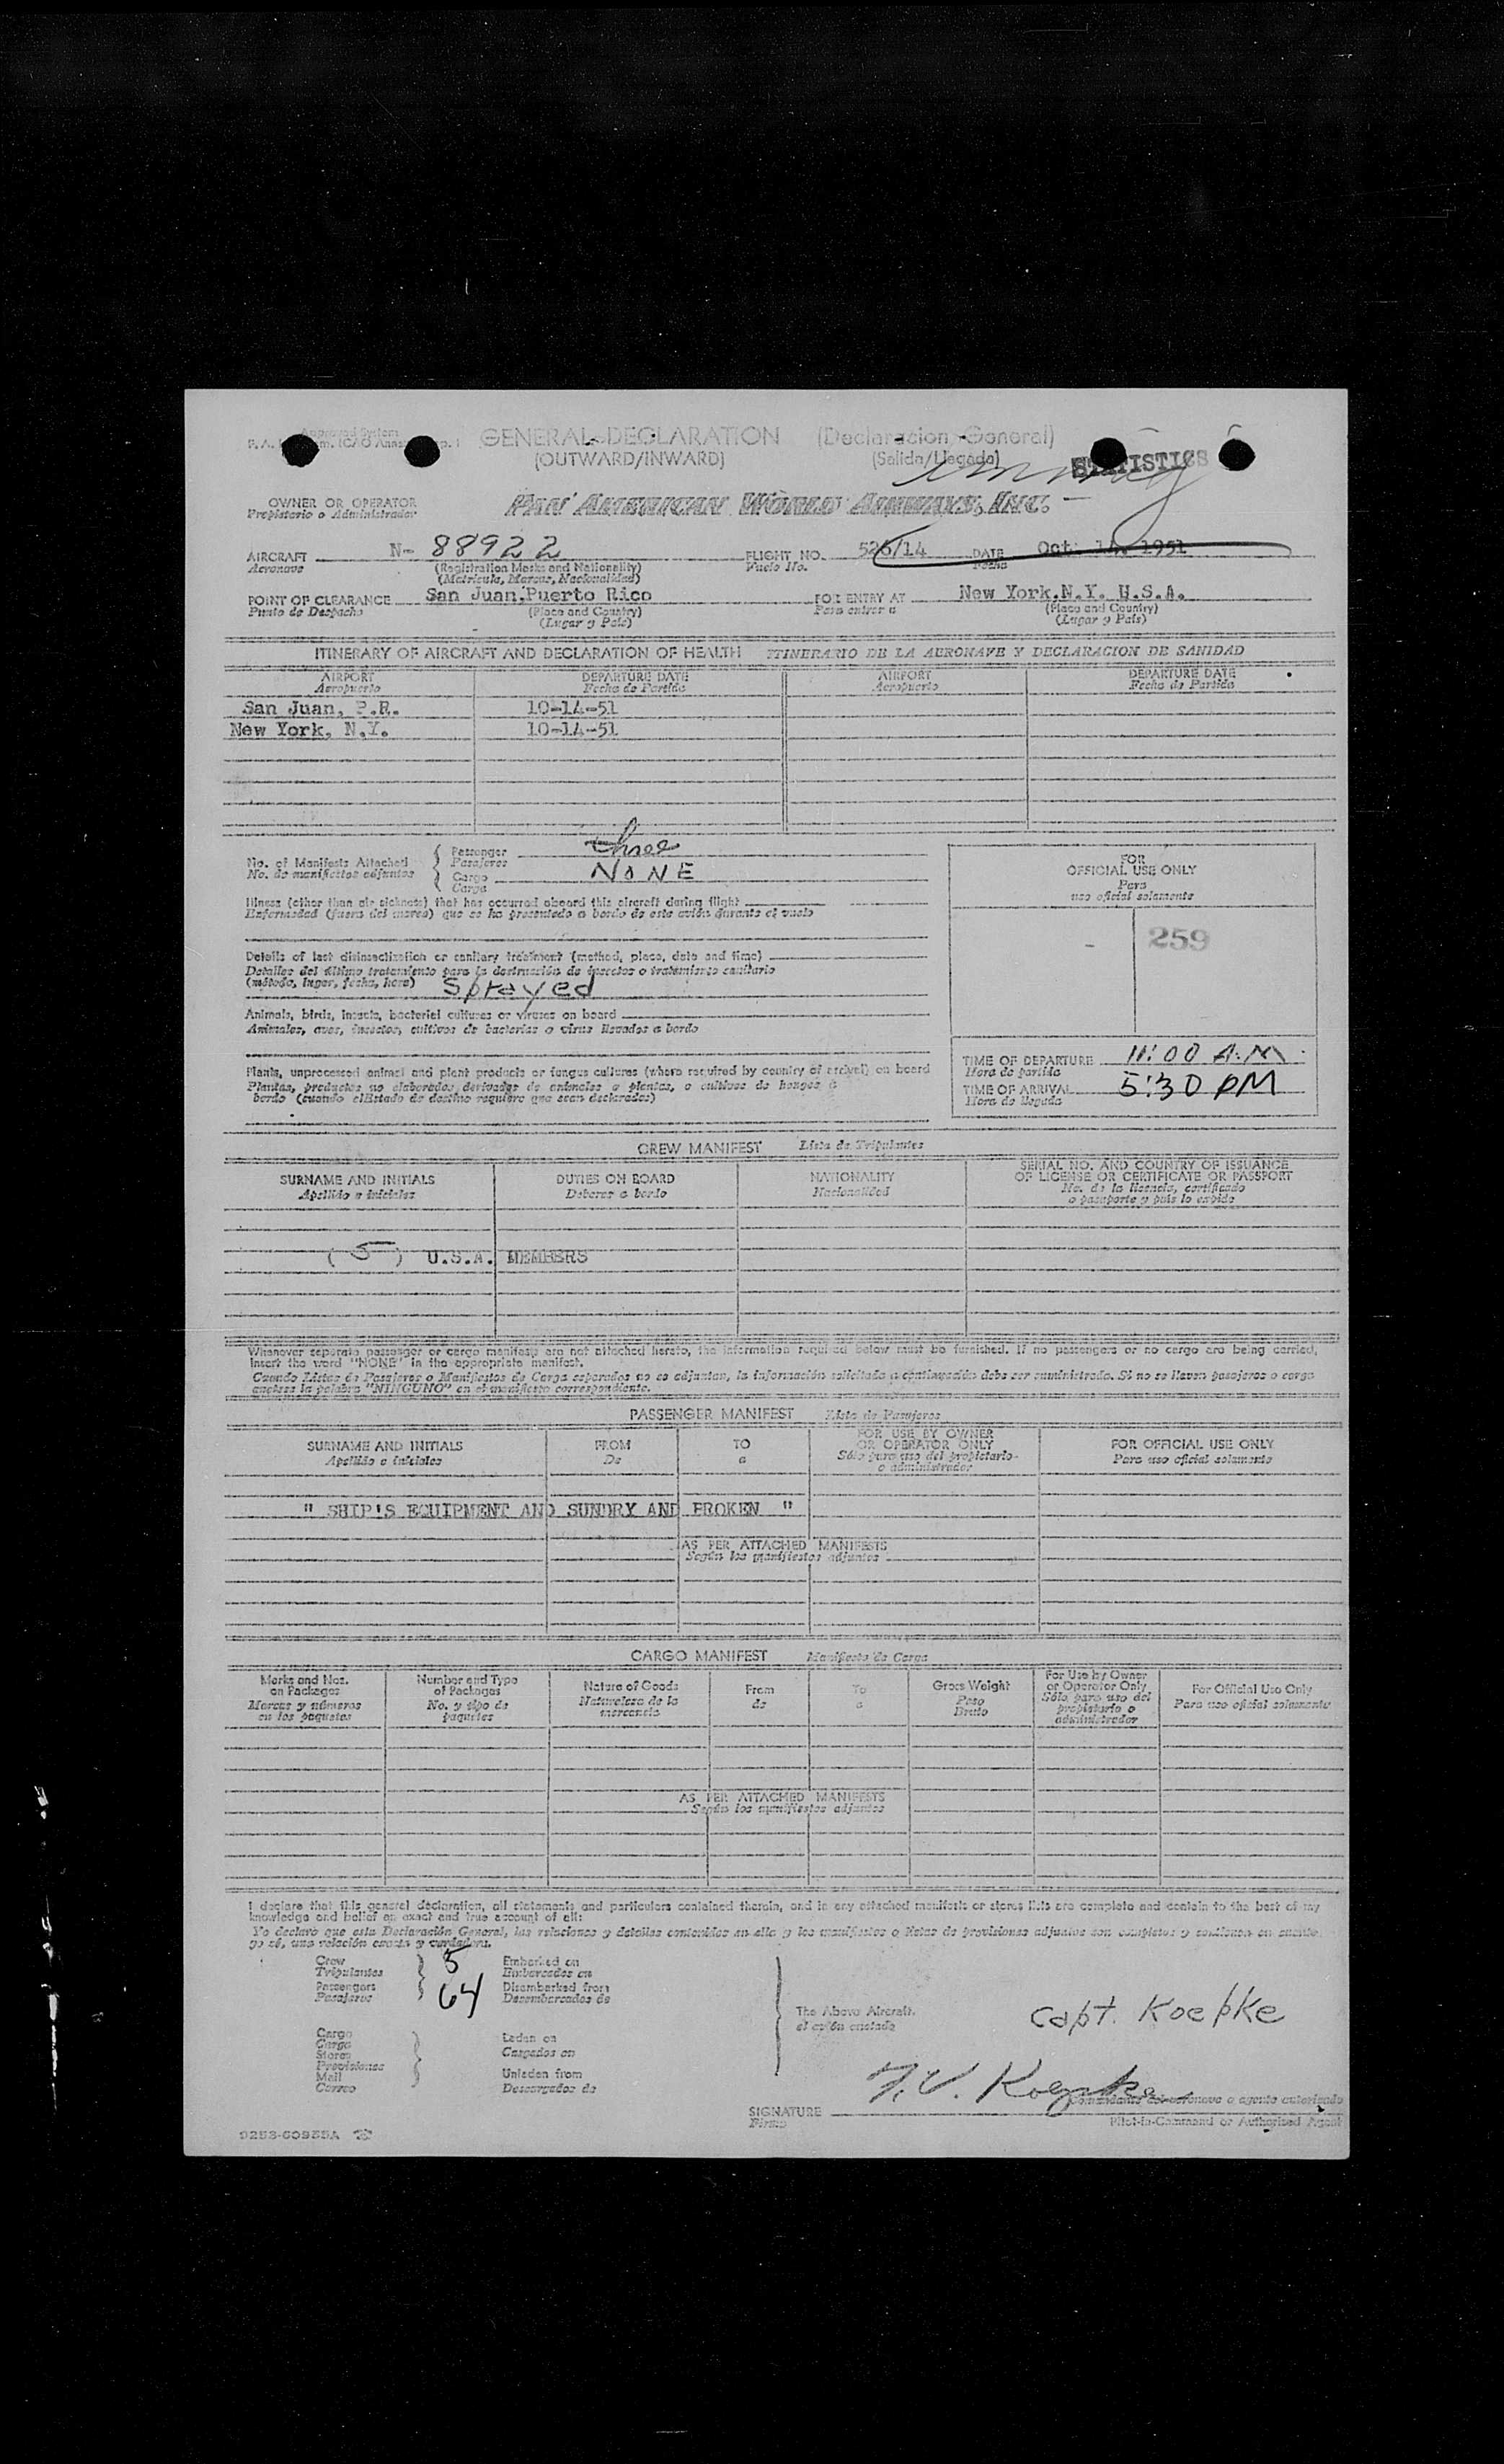 Approved System
GENERAL DECLARATION (Declaracion General)
(OUTWARD/INWARD) (Salida/Llegada)
STATISTICS
OWNER OR OPERATOR PAN AMERICAN WORLD AIRWAYS, INC.
Propietario o Administrador
AIRCRAFT N- 88922 FLIGHT NO. 526/14 DATE Oct. 14, 1951
Aeronave (Registration Marks and Nationality) Vuelo No. Fecha
(Matricula, Marcas, Nacionalidad)
POINT OF CLEARANCE San Juan, Puerto Rico FOR ENTRY AT New York, N.Y. U.S.A.
Punto de Despacho (Place and Country) Para entrar a (Place and Country)
(Lugar y Pais) (Lugar y Pais)
ITINERARY OF AIRCRAFT AND DECLARATION OF HEALTH ITINERARIO DE LA AERONAVE Y DECLARACION DE SANIDAD
AIRPORT DEPARTURE DATE AIRPORT DEPARTURE DATE
Aeropuerto Fecha de Partida Aeropuerto Fecha de Partida
San Juan, P.R. 10-14-51
New York, N.Y. 10-14-51
No. of Manifests Attached Passenger three
No. de manifiestos adjuntos Pasajeros
Cargo NONE
Carga
Illness (other than air sickness) that has occurred aboard this aircraft during flight
Enfermedad (fuera del mareo) que se ha presentado a bordo de este avión durante el vuelo
Details of last disinsectization or sanitary treatment (method, place, date and time)
Detalles del último tratamiento para la destrucción de insectos o tratamiento sanitario
(método, lugar, fecha, hora) Sprayed
Animals, birds, insects, bacterial cultures or viruses on board
Animales, aves, insectos, cultivos de bacterias o virus llevados a bordo
Plants, unprocessed animal and plant products or fungus cultures (where required by country of arrival) on board
Plantas, productos no elaborados derivados de animales o plantas, o cultivos de hongos a
bordo (cuando el Estado de destino requiere que sean declarados)
FOR
OFFICIAL USE ONLY
Para
uso oficial solamente
259
TIME OF DEPARTURE 11:00 A.M.
Hora de partida
TIME OF ARRIVAL 5:30 PM
Hora de llegada
CREW MANIFEST Lista de Tripulantes
SURNAME AND INITIALS DUTIES ON BOARD NATIONALITY SERIAL NO. AND COUNTRY OF ISSUANCE
OF LICENSE OR CERTIFICATE OR PASSPORT
Apellido e iniciales Deberes a bordo Nacionalidad No. de la licencia, certificado
o pasaporte y pais lo expide
( 5 ) U.S.A. MEMBERS
Whenever separate passenger or cargo manifests are not attached hereto, the information required below must be furnished. If no passengers or no cargo are being carried,
insert the word "NONE" in the appropriate manifest.
Cuando Listas de Pasajeros o Manifiestos de Carga separados no se adjuntan, la información solicitada a continuación debe ser suministrada. Si no se llevan pasajeros o carga
anótese la palabra "NINGUNO" en el manifiesto correspondiente.
PASSENGER MANIFEST Lista de Pasajeros
SURNAME AND INITIALS FROM TO FOR USE BY OWNER
OR OPERATOR ONLY FOR OFFICIAL USE ONLY
Apellido e iniciales De a Sólo para uso del propietario
o administrador Para uso oficial solamente
" SHIP'S EQUIPMENT AND SUNDRY AND BROKEN "
AS PER ATTACHED MANIFESTS
Según los manifiestos adjuntos
CARGO MANIFEST Manifiesto de Carga
Marks and Nos.
on Packages
Marcas y números
en los paquetes
Number and Type
of Packages
No. y tipo de
paquetes
Nature of Goods
Naturaleza de la
mercancía
From
de
To
a
Gross Weight
Peso
Bruto
For Use by Owner
or Operator Only
Sólo para uso del
propietario o
administrador
For Official Use Only
Para uso oficial solamente
AS PER ATTACHED MANIFESTS
Según los manifiestos adjuntos
I declare that this general declaration, all statements and particulars contained therein, and in any attached manifests or stores lists are complete and contain to the best of my
knowledge and belief an exact and true account of all:
Yo declaro que esta Declaración General, las relaciones y detalles contenidos en ella y los manifiestos o listas de provisiones adjuntos son completos y contienen en cuanto
yo sé, una relación exacta y verdadera.
Crew 5 Embarked on
Tripulantes Embarcados en
Passengers 64 Disembarked from
Pasajeros Desembarcados de
Cargo Laden on
Carga Cargados en
Stores
Provisiones
Mail Unladen from
Correo Descargados de
The Above Aircraft.
el avión anotado
Capt. Koepke
SIGNATURE F.V. Koepke
Firma
Comandante del aeronave o agente autorizado
Pilot-in-Command or Authorised Agent